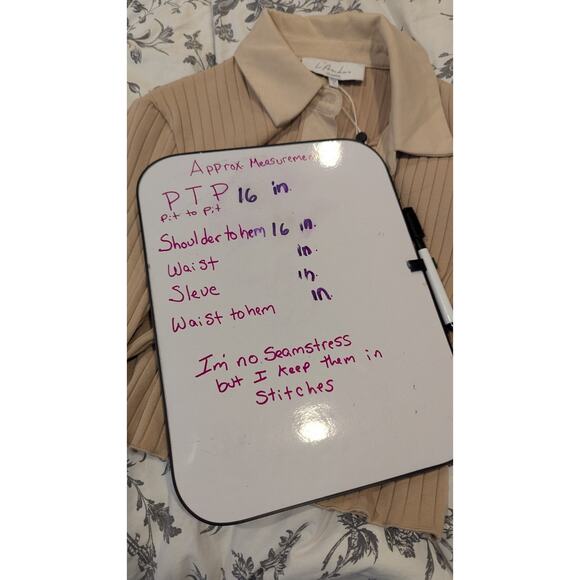 Approx. Measuremen
PTP 16 in.
Pit to Pit
Shoulder to hem 16 in.
Waist in.
Sleve in.
Waist to hem in.
I'm no Seamstress
but I keep them in
Stitches